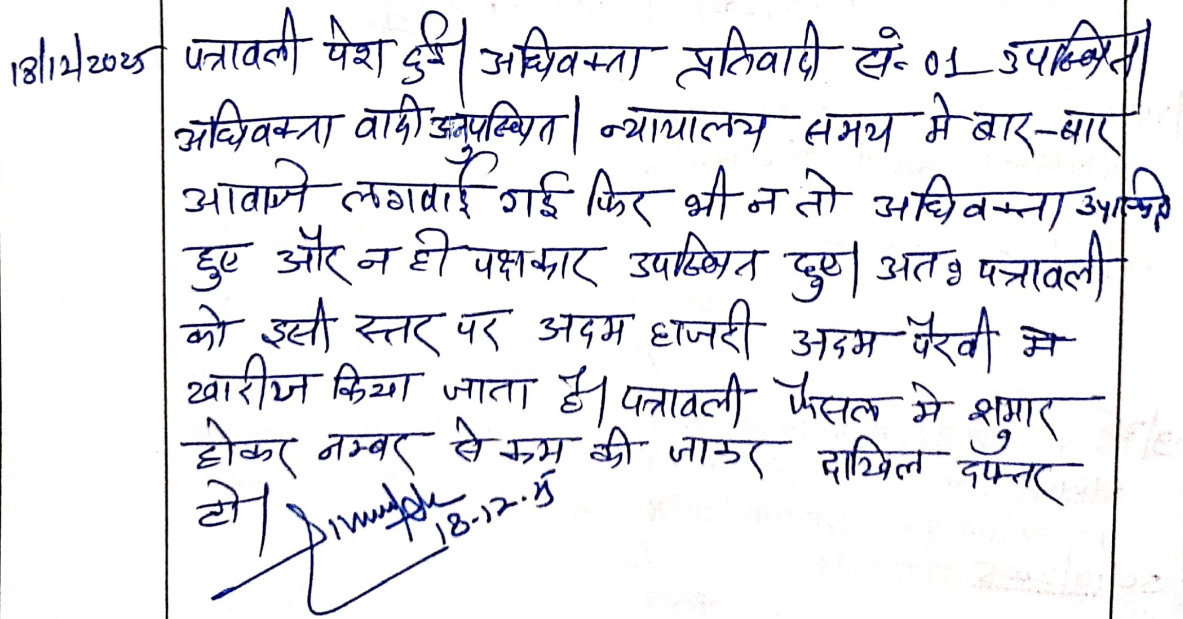 18/12/2025 पत्रावली पेश हुई| अधिवक्ता प्रतिवादी सं० 01 उपस्थित|
अधिवक्ता वादी अनुपस्थित| न्यायालय समय मे बार-बार
आवाजे लगवाई गई फिर भी न तो अधिवक्ता उपस्थित
हुए और न ही पक्षकार उपस्थित हुए| अतः पत्रावली
को इसी स्तर पर अदम हाजरी अदम पैरवी मे
खारीज किया जाता है| पत्रावली फैसल मे शुमार
होकर नम्बर से कम की जाकर दाखिल दफ्तर
हो|
18-12-25